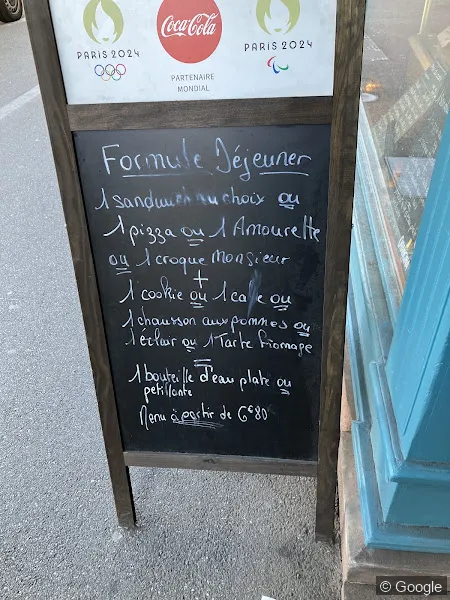 PARIS 2024
Coca-Cola
PARTENAIRE
MONDIAL
PARIS 2024
Formule Déjeuner
1 sandwich au choix ou
1 pizza ou 1 Amourette
ou 1 croque monsieur
+
1 cookie ou 1 cake ou
1 chausson aux pommes ou
1 éclair ou 1 Tarte fromage
=
1 bouteille d'eau plate ou
petillante
Menu à partir de 6€80
© Google